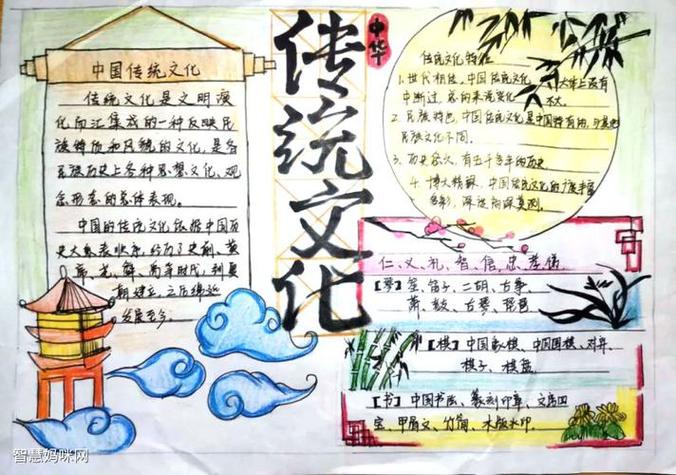 中国传统文化
传统文化是文明演
化而汇集成的一种反映民
族特质和风貌的文化,是各
民族历史上各种思想文化、观
念形态的总体表现。
中国的传统文化依据中国历
史大系表顺序,经历了史前、黄
帝、尧、舜、
朝建立,之后绵延
发展至今。
中华
传统文化
传统文化特征
1.世代相传,中国传统文化
中断过,总的来说变化不大。
2.民族特色,中国传统文化是中国特有的,与其他
民族文化不同。
3.历史悠久,有五千多年的历史
4.博大精深,中国传统文化的广度丰富
多彩,深度高深莫测。
仁、义、礼、智、信、忠、孝、悌
【琴】笙、笛子、二胡、古筝
萧、鼓、古琴、琵琶
【棋】中国象棋、中国围棋、对弈、
棋子、棋盘
【书】中国书法、篆刻印章、文房四
宝、甲骨文、竹简、木版水印。
智慧妈咪网